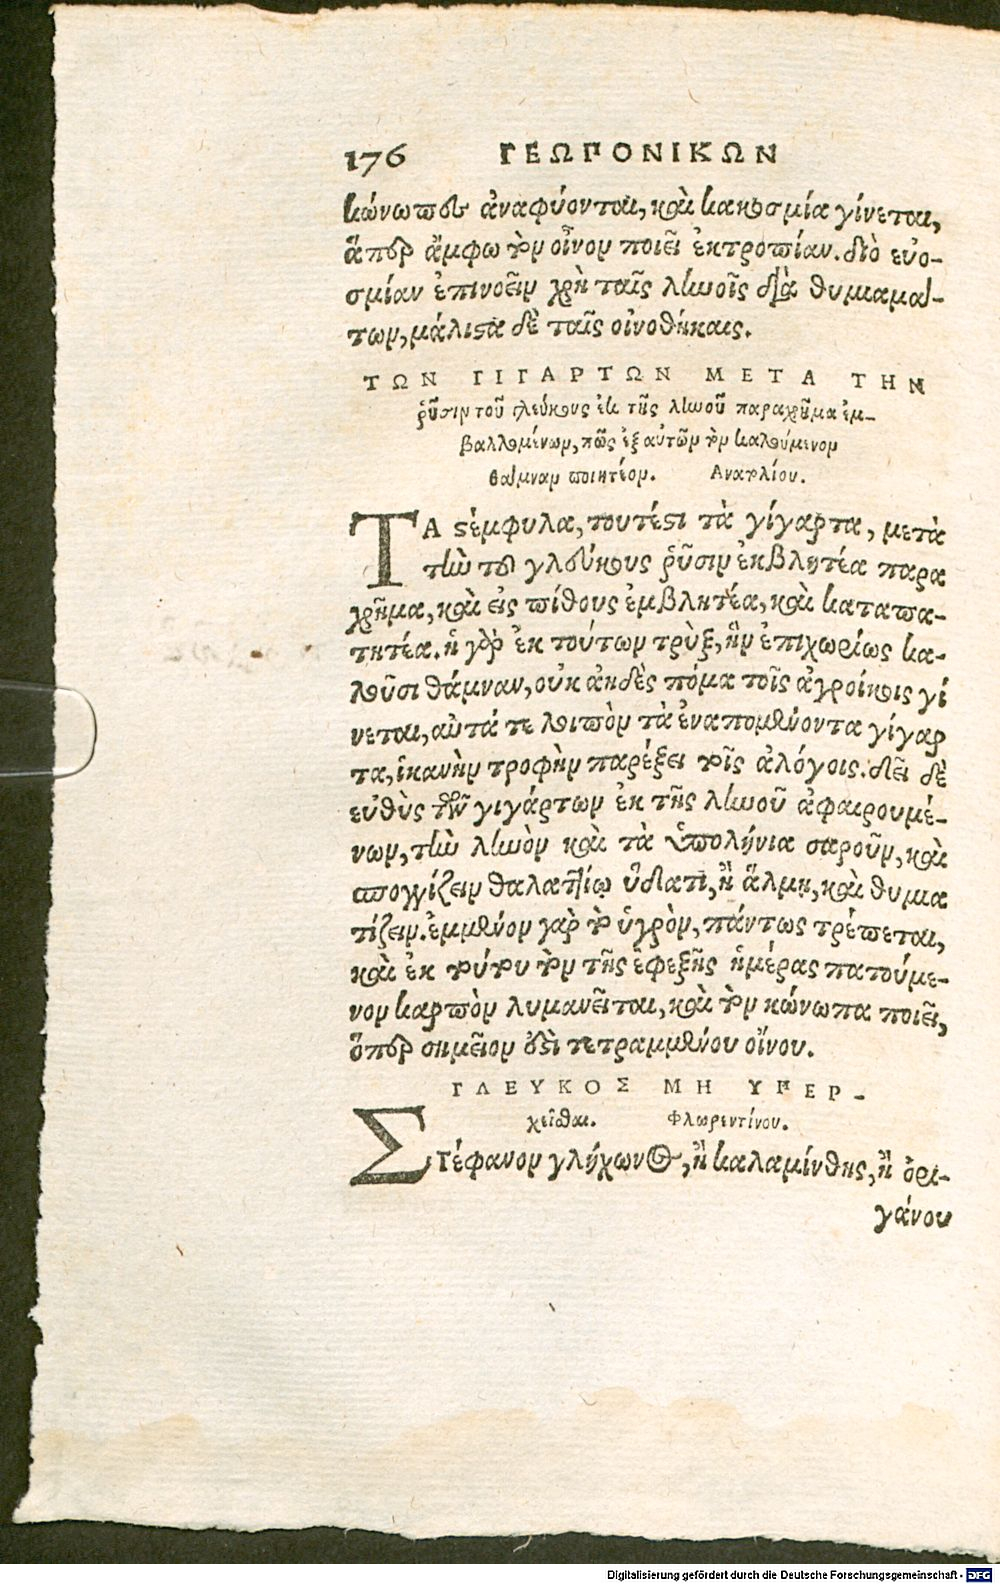 176 ΓΕΩΠΟΝΙΚΩΝ
κώνωπες ἀναφύονται, καὶ κακοσμία γίνεται,
ἅπερ ἄμφω τὸν οἶνον ποιεῖ ἐκτροπίαν. διὸ εὐο-
σμίαν ἐπινοεῖν χρὴ ταῖς ληνοῖς διὰ θυμιαμά-
των, μάλιστα δὲ ταῖς οἰνοθήκαις.
ΤΩΝ ΓΙΓΑΡΤΩΝ ΜΕΤΑ ΤΗΝ
ῥῦσιν τοῦ γλεύκους ἐκ τῆς ληνοῦ παραχρῆμα ἐμ-
βαλλομένων, πῶς ἐξ αὐτῶν τὸν καλούμενον
θάμναν ποιητέον. Ἀνατολίου.
ΤΑ στέμφυλα, τουτέστι τὰ γίγαρτα, μετὰ
τὴν τοῦ γλεύκους ῥῦσιν ἐκβλητέα παρα
χρῆμα, καὶ εἰς πίθους ἐμβλητέα, καὶ καταπα-
τητέα. ἡ γὰρ ἐκ τούτων τρὺξ, ἣν ἐπιχωρίως κα-
λοῦσι θάμναν, οὐκ ἀηδὲς πόμα τοῖς ἀγροίκοις γί
νεται, αὐτά τε λοιπὸν τὰ ἐναπομένοντα γίγαρ
τα, ἱκανὴν τροφὴν παρέξει τοῖς ἀλόγοις. δεῖ δὲ
εὐθὺς τῶν γιγάρτων ἐκ τῆς ληνοῦ ἀφαιρουμέ-
νων, τὴν ληνὸν καὶ τὰ ὑπολήνια σαροῦν, καὶ
σπογγίζειν θαλαττίῳ ὕδατι, ἢ ἅλμῃ, καὶ θυμια
τίζειν. ἐμμένον γὰρ τὸ ὑγρὸν, πάντως τρέπεται,
καὶ ἐκ τούτου τὸν τῆς ἐφεξῆς ἡμέρας πατούμε-
νον καρπὸν λυμανεῖται, καὶ τὸν κώνωπα ποιεῖ,
ὅπερ σημεῖον ἐστὶ τετραμμένου οἴνου.
ΓΛΕΥΚΟΣ ΜΗ ΥΠΕΡ-
χεῖσθαι. Φλωρεντίνου.
Στέφανον γλήχωνος, ἢ καλαμίνθης, ἢ ὀρι-
γάνου
Digitalisierung gefördert durch die Deutsche Forschungsgemeinschaft - DFG